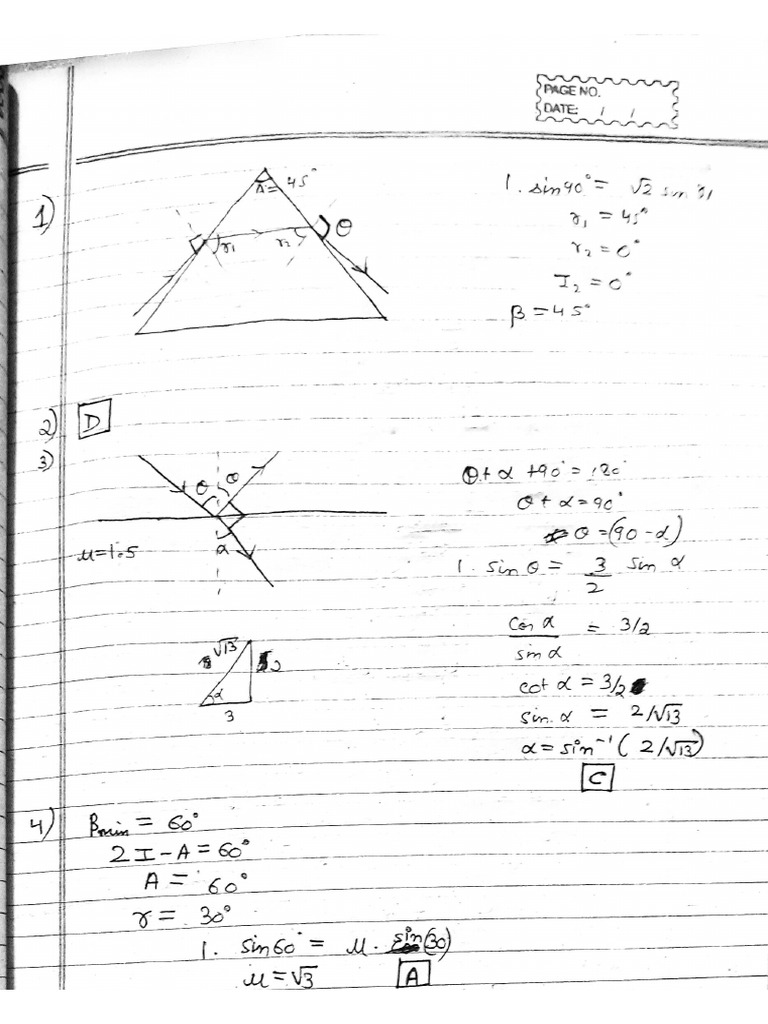 PAGE NO.
DATE: / /
1)
A = 45°
r1
r2
θ
1. sin90° = √2 sin r1
r1 = 45°
r2 = 0°
I2 = 0°
β = 45°
2) D
3)
θ θ
α
μ=1.5
θ + α + 90° = 180°
θ + α = 90°
θ = (90 - α)
1. sin θ = 3/2 sin α
cos α / sin α = 3/2
cot α = 3/2
sin α = 2/√13
α = sin⁻¹ (2/√13)
C
√13
2
α
3
4) βmin = 60°
2I - A = 60°
A = 60°
r = 30°
1. sin60° = μ. sin(30)
μ = √3 A